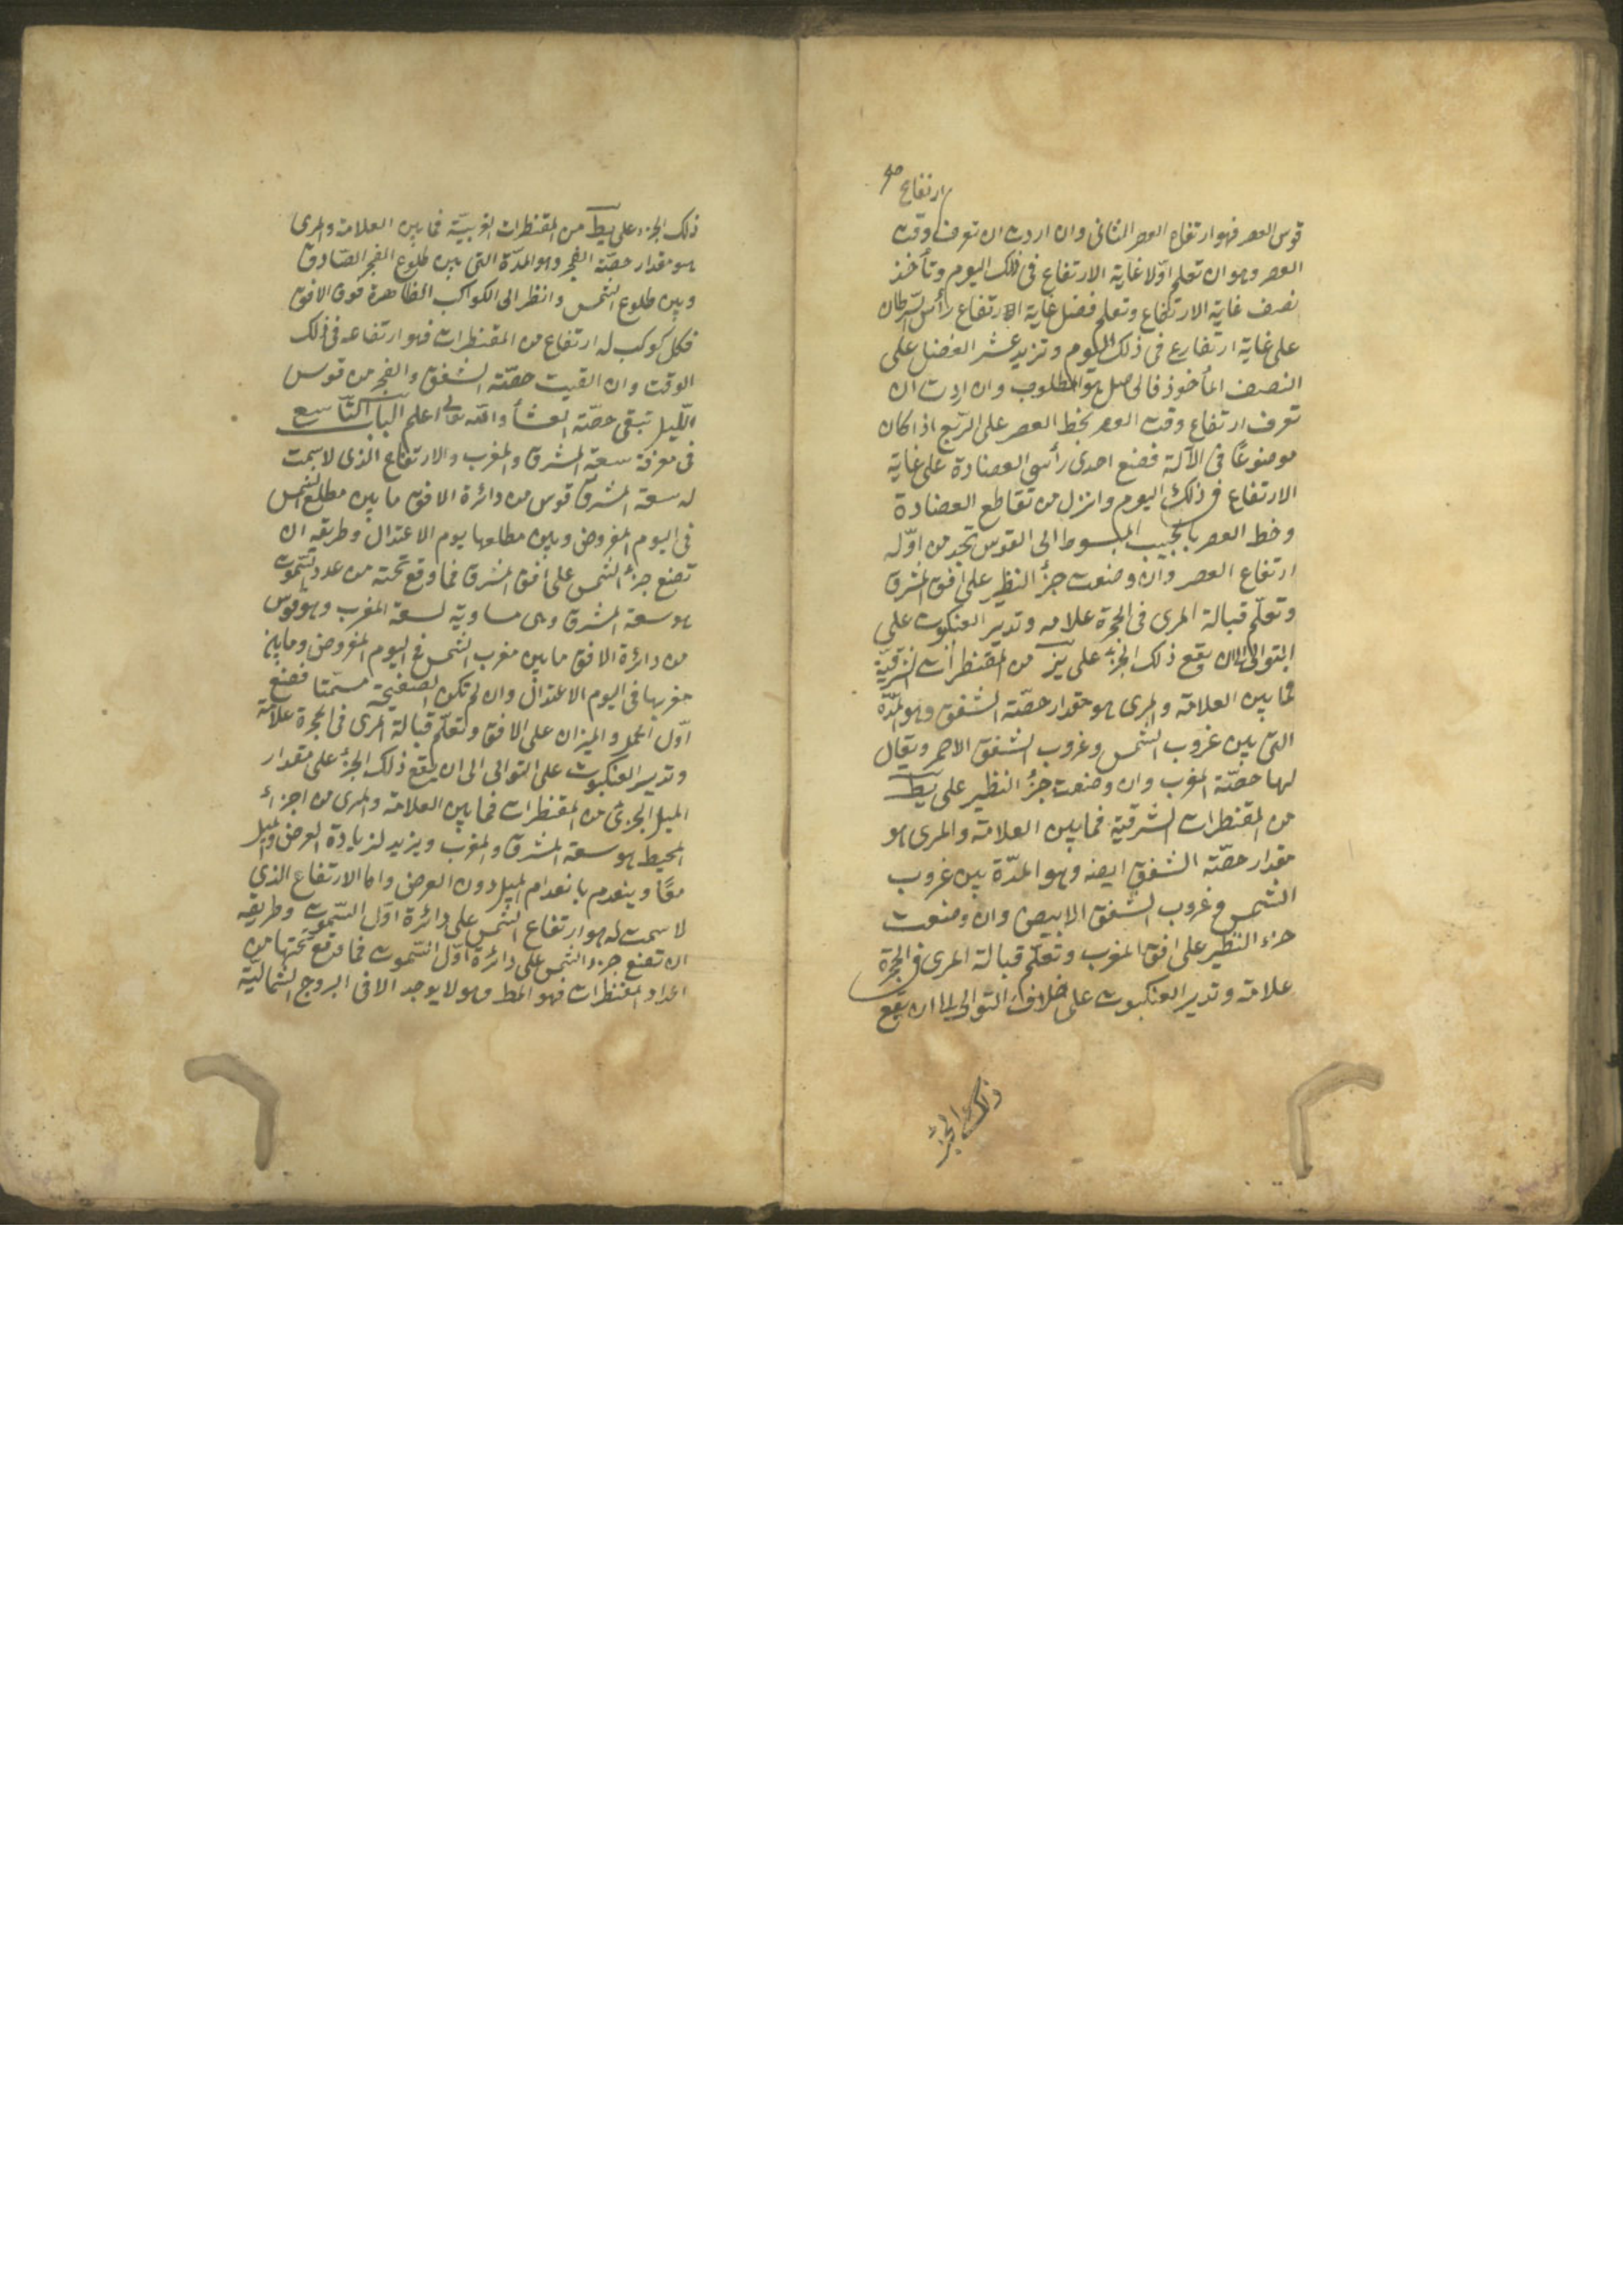 ارتفاع صح
قوس العصر فهو ارتفاع العصر الثانى وان اردت ان تعرف وقت
العصر وهو ان تعلم اوّلا غاية الارتفاع فى ذلك اليوم وتأخذ
نصف غاية الارتفاع وتعلم فضل غاية الارتفاع رأس السرطان
على غاية ارتفاع فى ذلك اليوم وتزيد عشر الفضل على
النصف المأخوذ فالحاصل هو المطلوب وان اردت ان
تعرف ارتفاع وقت العصر بخط العصر على الربع اذا كان
موضوعًا فى الآلة فضع احدى رأسى العضادة على غاية
الارتفاع فى ذلك اليوم وانزل من تقاطع العضادة
وخط العصر بالجيب المبسوط الى القوس تجد من اوّله
ارتفاع العصر وان وضعت جزأ النظير على افق المشرق
وتعلّم قبالة المرى فى الحجرة علامه وتدير العنكبوت على
التوالى الى ان يقع ذلك الجزء على يز من المقنطرات الشرقيّة
فما بين العلامة والمرى هو مقدار حصّة الشفق وهو المدّة
التى بين غروب الشمس وغروب الشفق الاحمر ويقال
لها حصّة المغرب وان وضعت جزأ النظير على يط
من المقنطرات الشرقية فما بين العلامة والمرى هو
مقدار حصّة الشفق ايضه وهو المدّة بين غروب
الشمس وغروب الشفق الابيض وان وضعت
جزء النظير على افق المغرب وتعلّم قبالة المرى فى الحجرة
علامة وتدير العنكبوت على خلاف التوالى الى ان يقع
ذلك الجزء
ذلك الجزء على يط من المقنطرات الغربيّة فما بين العلامة والمرى
هو مقدار حصّة الفجر وهو المدّة التى بين طلوع الفجر الصّادق
وبين طلوع الشمس وانظر الى الكواكب الظاهرة فوق الافق
فكل كوكب له ارتفاع من المقنطرات فهو ارتفاعه فى ذلك
الوقت وان القيت حصّة الشفق والفجر من قوس
اللّيل تبقى حصّة العشأ والله تعالى اعلم الباب التّاسع
فى معرفة سعة المشرق والمغرب والارتفاع الذى لاسمت
له سعة المشرق قوس من دائرة الافق ما بين مطلع الشمس
فى اليوم المفروض وبين مطلعها يوم الاعتدال وطريقه ان
تضع جزأ الشمس على افق المشرق فما وقع تحته من عدد السّموت
هو سعة المشرق وهى مساوية لسعة المغرب وهو قوس
من دائرة الافق ما بين مغرب الشمس فى اليوم المفروض وما بين
مغربها فى اليوم الاعتدال وان لم تكن الصفيحة مسمّتا فضع
اوّل الحمل والميزان على الافق وتعلّم قبالة المرى فى الحجرة علامة
وتدير العنكبوت على التوالى الى ان يقع ذلك الجزء على مقدار
الميل الجزئ من المقنطرات فما بين العلامة والمرى من اجزاء
المحيط هو سعة المشرق والمغرب ويزيد لزيادة العرض والميل
معًا وينعدم بانعدام الميل دون العرض واما الارتفاع الذى
لاسمت له هو ارتفاع الشمس على دائرة اوّل السّموت وطريقه
ان تضع جزء الشمس على دائرة اوّل السّموت فما وقع تحتها من
اعداد المقنطرات فهو المط وهو لا يوجد الا فى البروج الشماليّة